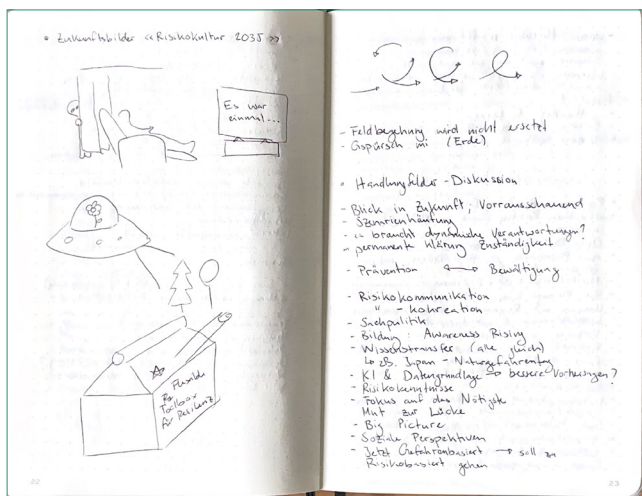 • Zukunftsbilder «Risikokultur 2035»
Es war
einmal...
Flexible
Toolbox
für Resilienz
22
- Feldbegehung wird nicht ersetzt
- Gspürsch mi (Erde)
• Handlungsfelder - Diskussion
- Blick in Zukunft, Vorrausschauend
- Szenrienhäufung
- " braucht dynamische Verantwortungen?
- permanente Klärung Zuständigkeit
- Prävention ⟷ Bewältigung
- Risikokommunikation
" - kokreation
- Sachpolitik
- Bildung: Awareness Rising
- Wissenstransfer (alle gleich)
↳ zB. Japan - Naturgefahrentag
- KI & Datengrundlage → bessere Vorhersagen?
- Risikokenntnisse
- Fokus auf das Nötigste
Mut zur Lücke
- Big Picture
- Soziale Perspektiven
- Jetzt Gefahrenbasiert → soll zu
Risikobasiert gehen
23